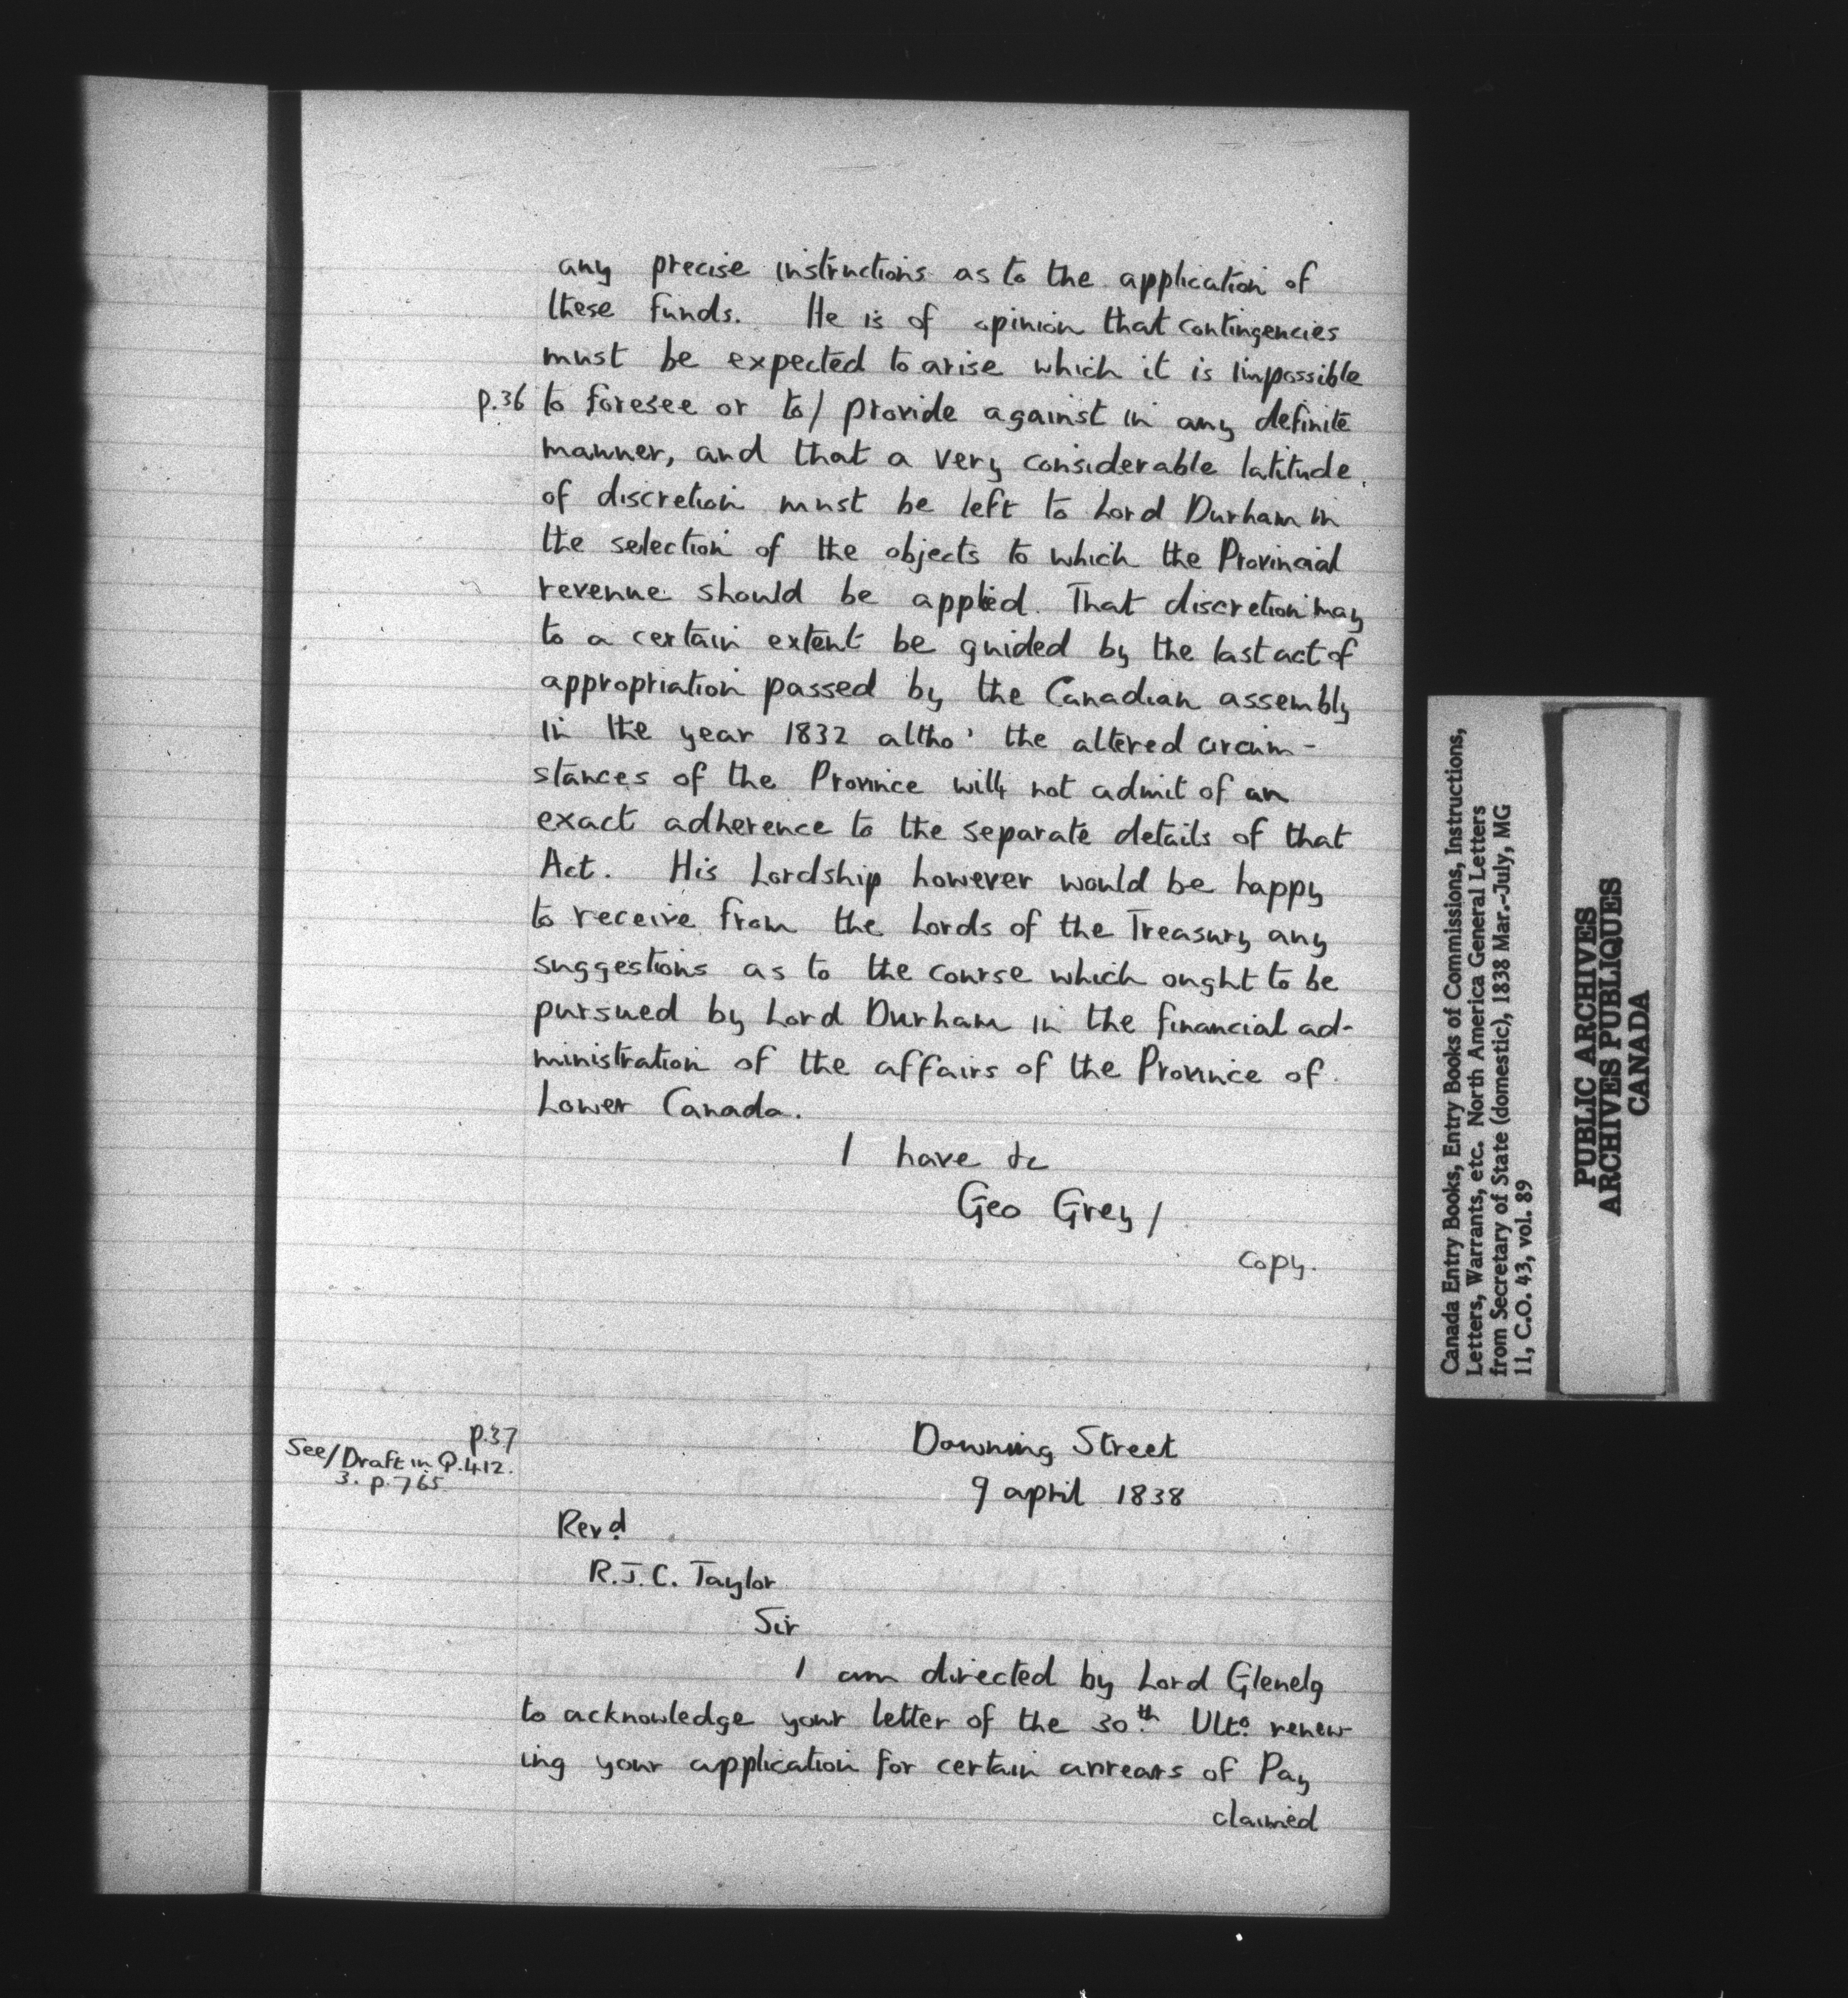 any precise instructions as to the application of
these funds. He is of opinion that contingencies
must be expected to arise which it is impossible
p.36 to foresee or to/ provide against in any definite
manner, and that a very considerable latitude
of discretion must be left to Lord Durham in
the selection of the objects to which the Provincial
revenue should be applied. That discretion may
to a certain extent be guided by the last act of
appropriation passed by the Canadian assembly
in the year 1832 altho' the altered circum-
stances of the Province will not admit of an
exact adherence to the separate details of that
Act. His Lordship however would be happy
to receive from the Lords of the Treasury any
suggestions as to the course which ought to be
pursued by Lord Durham in the financial ad-
ministration of the affairs of the Province of
Lower Canada.
I have &c
Geo Grey/
Copy.
p.37
See/Draft in Q.412.
3. p.765
Downing Street
9 april 1838
Revd
R.J.C. Taylor
Sir
I am directed by Lord Glenelg
to acknowledge your letter of the 30th Ulto renew-
ing your application for certain arrears of Pay
claimed
Canada Entry Books, Entry Books of Commissions, Instructions,
Letters, Warrants, etc. North America General Letters
from Secretary of State (domestic), 1838 Mar.-July, MG
11, C.O. 43, vol. 89
PUBLIC ARCHIVES
ARCHIVES PUBLIQUES
CANADA